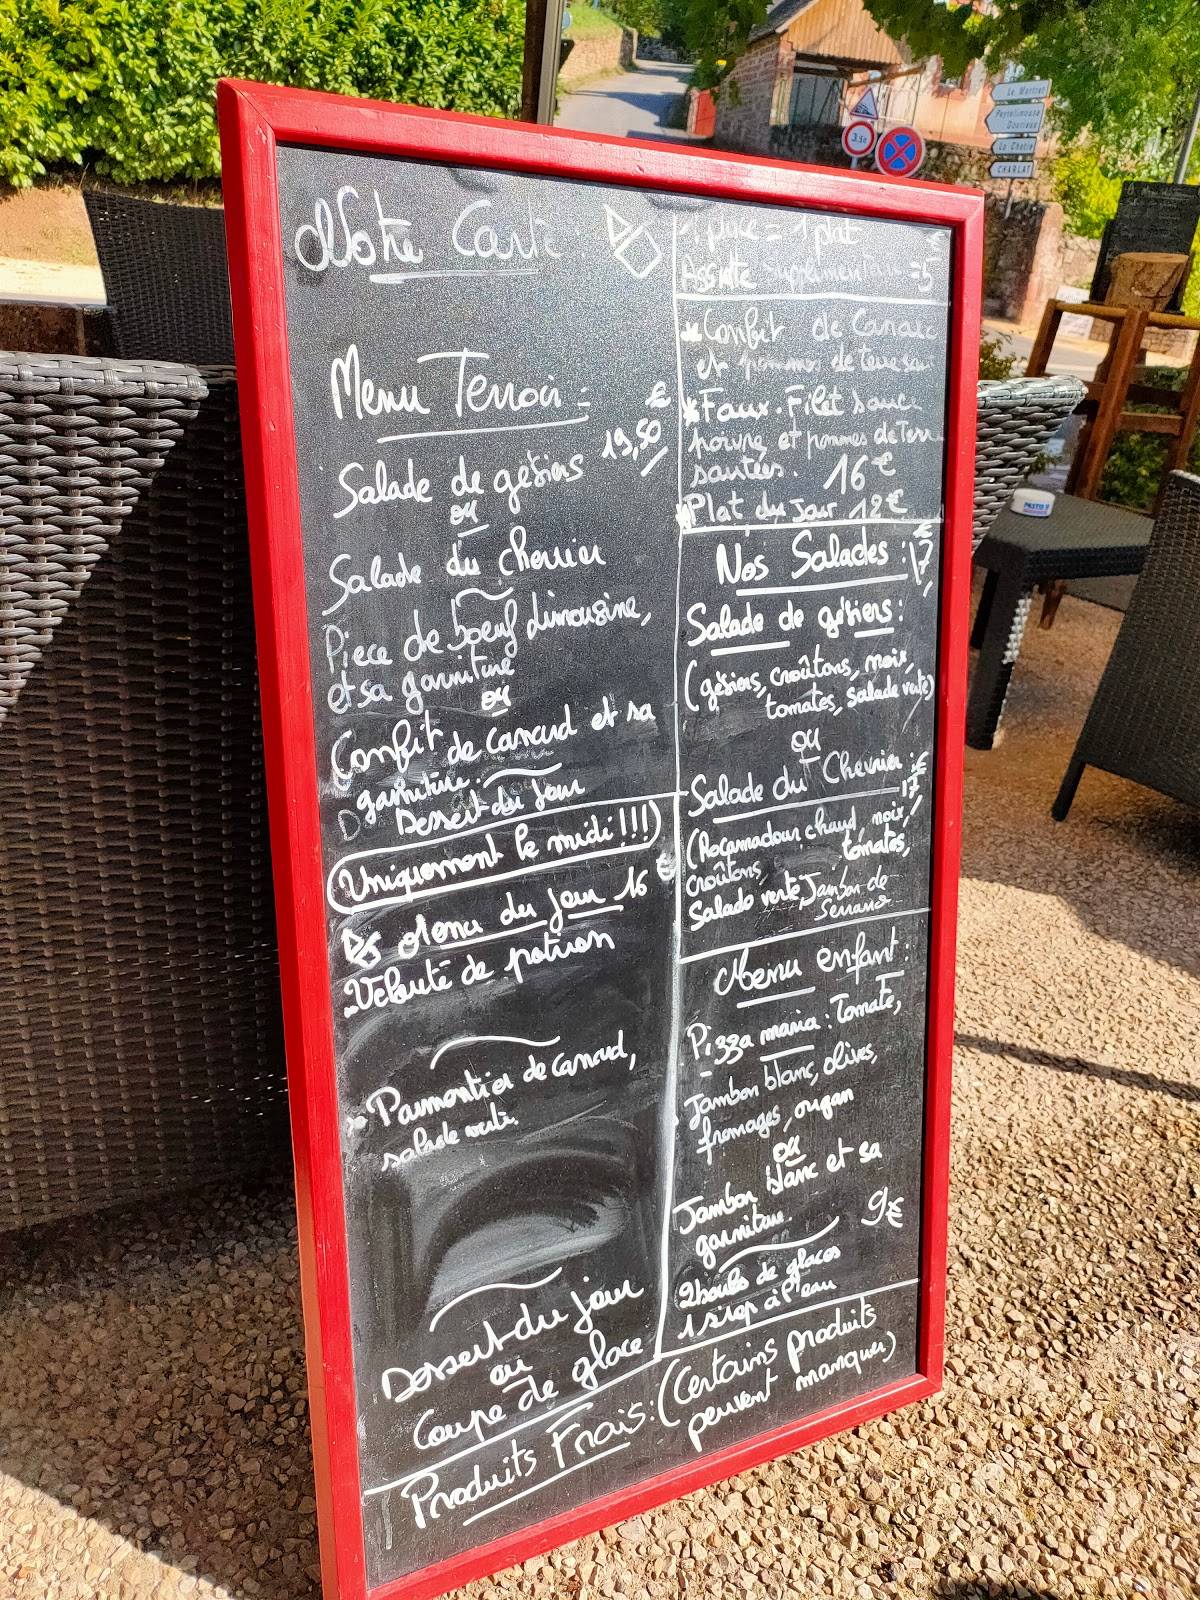 Notre Carte
Menu Terroir =
€
19,50
Salade de gésiers
ou
Salade du chevrier
Piece de boeuf Limousine,
et sa garniture
ou
Confit de canard et sa
garniture.
Dessert du Jour
Uniquement le midi !!!
Menu du Jour 16 €
Velouté de potiron
Parmentier de canard,
salade verte.
Dessert du jour
ou
Coupe de glace
1 pièce = 1 plat
Assiette supplémentaire = 5
* Confit de Canard
et pommes de terre
* Faux. Filet sauce
poivre et pommes de Terre
sautées. 16 €
Plat du Jour 12 €
Nos Salades : 17 €
Salade de gésiers :
(gésiers, croûtons, noix,
tomates, salade verte)
ou
Salade du Chevrier 17 €
(Rocamadour chaud, noix,
croûtons, tomates,
Salade verte, Jambon de
Serrano
Menu enfant :
Pizza maria : Tomate,
Jambon blanc, olives,
fromages, origan
ou
Jambon blanc et sa
garniture. 9€
2 boules de glaces
1 sirop à l'eau
Produits Frais : (Certains produits
peuvent manquer)
3.5t
Le Martret
La Chatie
CHARLAT